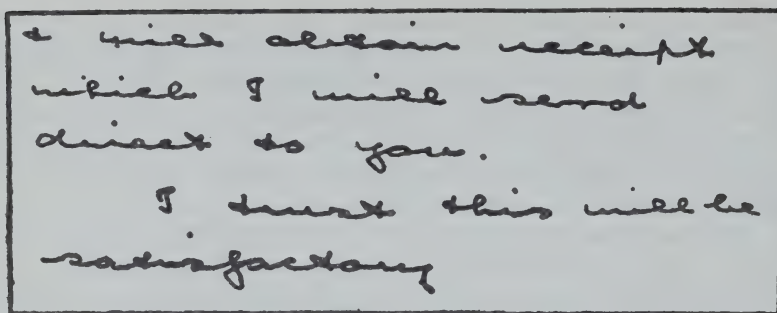 & will obtain receipt
which I will send
direct to you.
I trust this will be
satisfactory